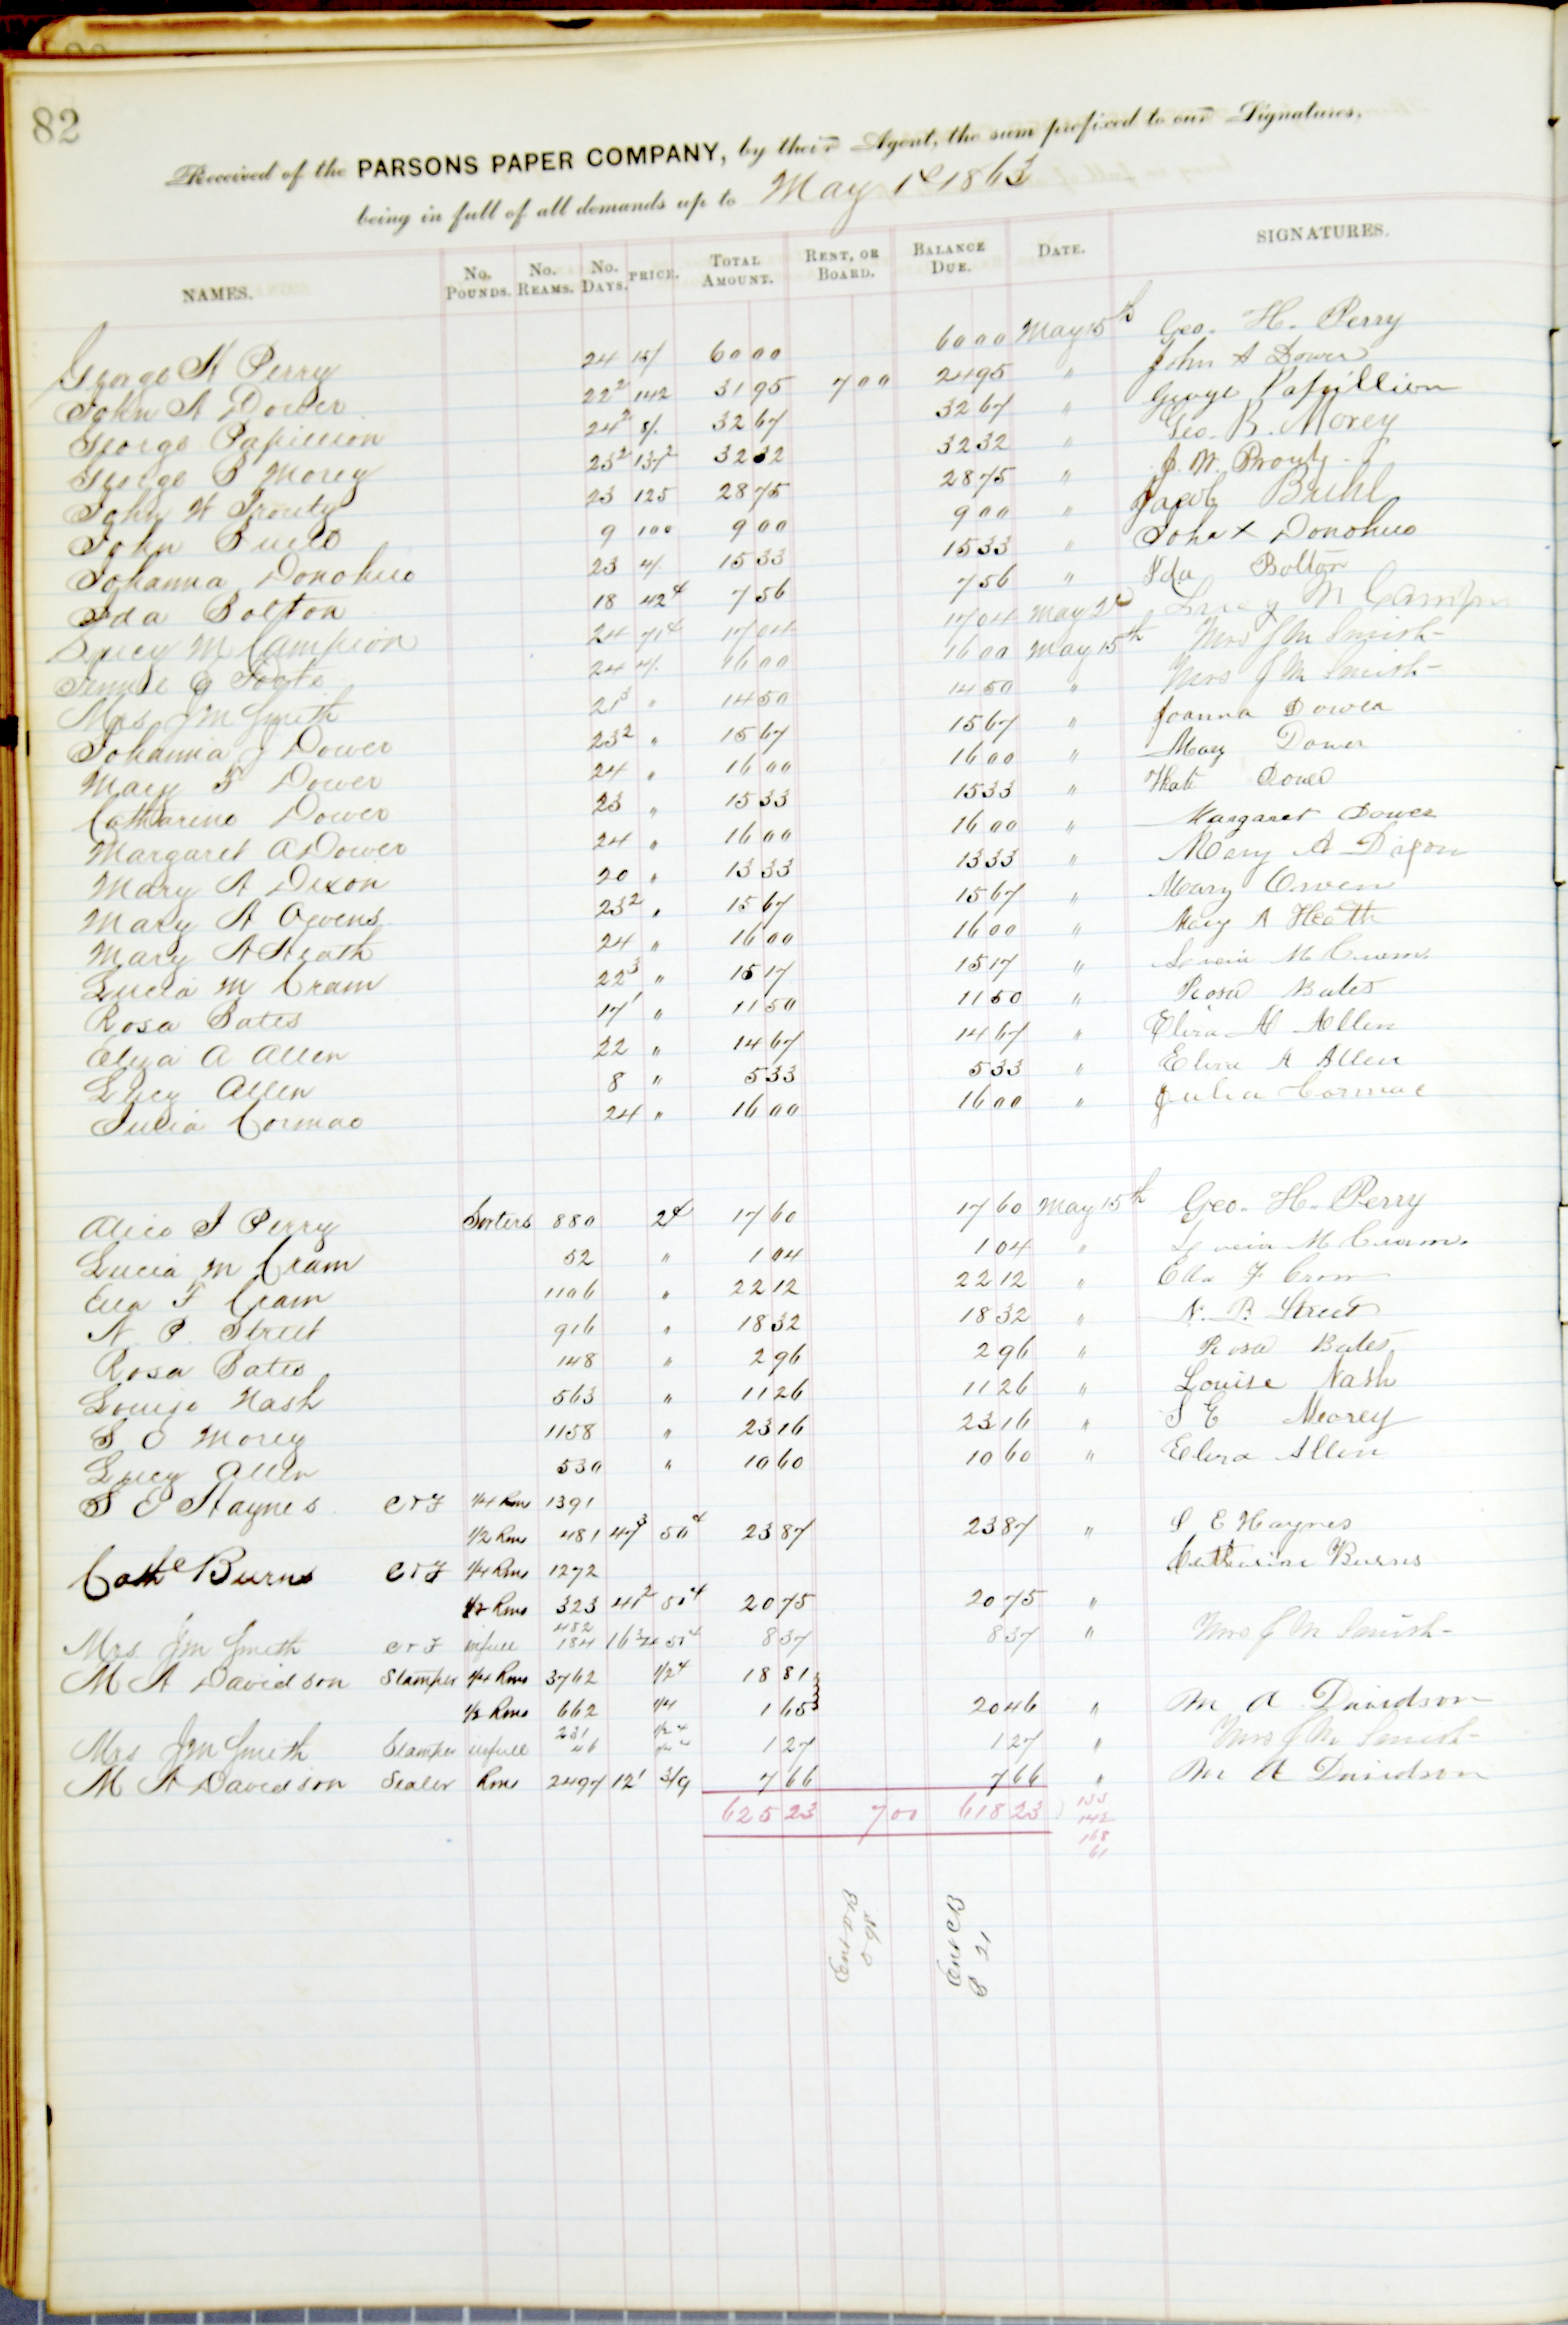 82
Received of the PARSONS PAPER COMPANY, by their Agent, the sum prefixed to our Signatures,
being in full of all demands up to May 1st 1863
NAMES. No. POUNDS. No. REAMS. No. DAYS. PRICE. TOTAL AMOUNT. RENT, OR BOARD. BALANCE DUE. DATE. SIGNATURES.
George H Perry 24 15/ 60 00 60 00 May 15th Geo. H. Perry
John A Dower 22 2 142 31 95 7 00 24 95 " John A Dower
George Papillion 24 2 8/ 32 67 32 67 " George Papillion
George B Morey 23 2 137 2 32 32 32 32 " Geo. B. Morey
John W Prouty 23 125 28 75 28 75 " J. W. Prouty
John Buell 9 100 9 00 9 00 " Jacob Buhl
Johanna Donohue 23 4/ 15 33 15 33 " Joha x Donohue
Ida Bolton 18 42 4 7 56 7 56 " Ida Bolton
Lucy M Campion 24 71 4 17 04 17 04 May 2d Lucy M Campion
Jennie G Foote 24 4/ 16 00 16 00 May 15th Mrs J M Smith
Mrs J M Smith 21 3 " 14 50 14 50 " Mrs J M Smith
Johanna J Dower 23 2 " 15 67 15 67 " Joanna Dower
Mary F Dower 24 " 16 00 16 00 " Mary Dower
Catharine Dower 23 " 15 33 15 33 " Kate Dower
Margaret A Dower 24 " 16 00 16 00 " Margaret Dower
Mary A Dixon 20 " 13 33 13 33 " Mary A Dixon
Mary A Owens 23 2 " 15 67 15 67 " Mary Owen
Mary A Heath 24 " 16 00 16 00 " Mary A Heath
Lucia M Cram 22 3 " 15 17 15 17 " Lucia M Cram
Rosa Bates 17 1 " 11 50 11 50 " Rosa Bates
Eliza A Allen 22 " 14 67 14 67 " Eliza A Allen
Lucy Allen 8 " 5 33 5 33 " Eliza A Allen
Julia Cormac 24 " 16 00 16 00 " Julia Cormac
Alice I Perry Sorters 880 2¢ 17 60 17 60 May 15th Geo. H. Perry
Lucia M Cram 52 " 1 04 1 04 " Lucia M Cram.
Ella F Cram 1106 " 22 12 22 12 " Ella F Cram
N. P. Street 916 " 18 32 18 32 " N. P. Street
Rosa Bates 148 " 2 96 2 96 " Rosa Bates
Louise Nash 563 " 11 26 11 26 " Louise Nash
S E Morey 1158 " 23 16 23 16 " S E Morey
Lucy Allen 530 " 10 60 10 60 " Eliza Allen
S E Haynes C & F 1/4 Rms 1391
1/2 Rms 481 47 3 50¢ 23 87 23 87 " S E Haynes
Cathe Burns C & F 1/4 Rms 1272 Catherine Burns
1/2 Rms 323 41 2 50¢ 20 75 20 75 "
482
Mrs J M Smith C & F infull 184 16 3/4 50¢ 8 37 8 37 " Mrs J M Smith
M A Davidson Stamper 1/4 Rms 3762 1/2¢ 18 81
1/2 Rms 662 1/4 1 65 20 46 " M A Davidson
231 1/2¢
Mrs J M Smith Stamper infull 46 1 27 1 27 " Mrs J M Smith
M A Davidson Sealer Rms 2497 12 1 3/9 7 66 7 66 " M A Davidson
625 23 7 00 618 23
153
142
168
61
Ent CB
P 21